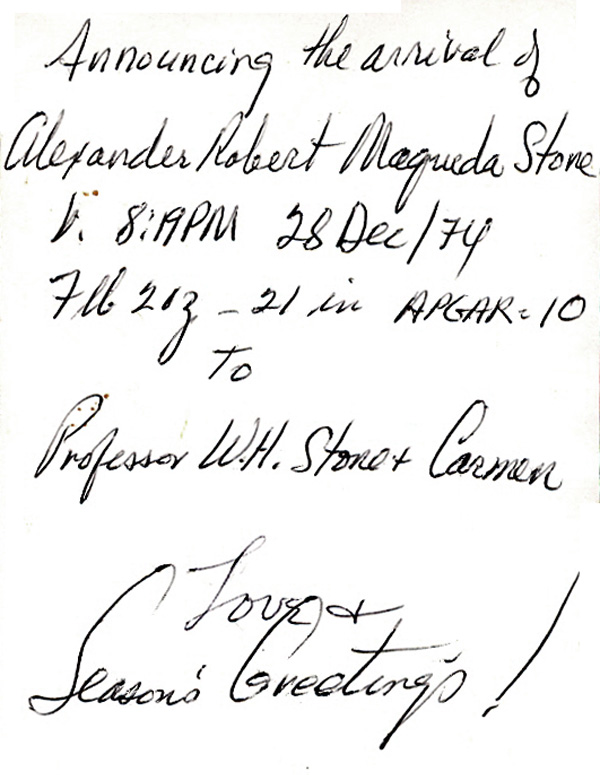 Announcing the arrival of
Alexander Robert Maqueda Stone
b. 8:19PM 28 Dec/74
7lb 2oz - 21 in APGAR=10
To
Professor W.H. Stone + Carmen
Love +
Season's Greetings!